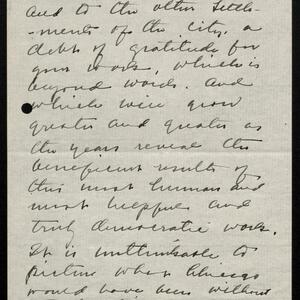 and to the other Settle-
-ments of the city, a
debt of gratitude for
your work, which is
beyond words. And
which will grow
greater and greater as
the years reveal the
beneficent results of
this most human and
most helpful and
truly democratic work.
It is unthinkable to
picture what Chicago
would have been without